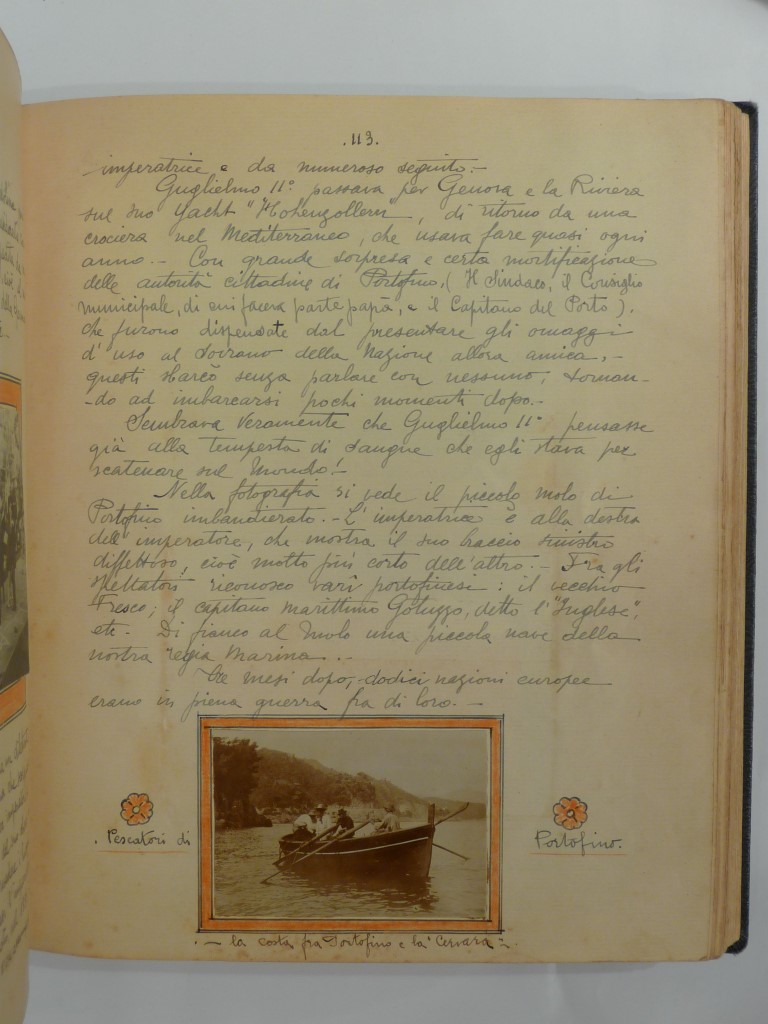 .113.
imperatrice e da numeroso seguito.-
Guglielmo II° passava per Genova e la Riviera
sul suo Yacht "Hohenzollern", di ritorno da una
crociera nel Mediterraneo, che usava fare quasi ogni
anno.- Con grande sorpresa e certa mortificazione
delle autorità cittadine di Portofino, (Il Sindaco, il Consiglio
municipale, di cui faceva parte papà, e il Capitano del Porto).
che furono dispensate dal presentare gli omaggi
d'uso al Sovrano della Nazione allora amica,-
questi sbarcò senza parlare con nessuno, tornan-
-do ad imbarcarsi pochi momenti dopo.-
Sembrava veramente che Guglielmo II° pensasse
già alla tempesta di sangue che egli stava per
scatenare sul Mondo!-
Nella fotografia si vede il piccolo molo di
Portofino imbandierato.- L'imperatrice è alla destra
dell'imperatore, che mostra il suo braccio sinistro
diffettoso, cioè molto più corto dell'altro.- Fra gli
spettatori riconosco varî portofinesi: il vecchio
Fresco; il capitano marittimo Gotuzzo, detto l'"Inglese",
etc- Di fianco al Molo una piccola nave della
nostra regia Marina.-
mesi dopo, dodici nazioni europee
erano in piena guerra fra di loro.-
. Pescatori di
Portofino.
.- la costa fra Portofino e la "Cervara"-.